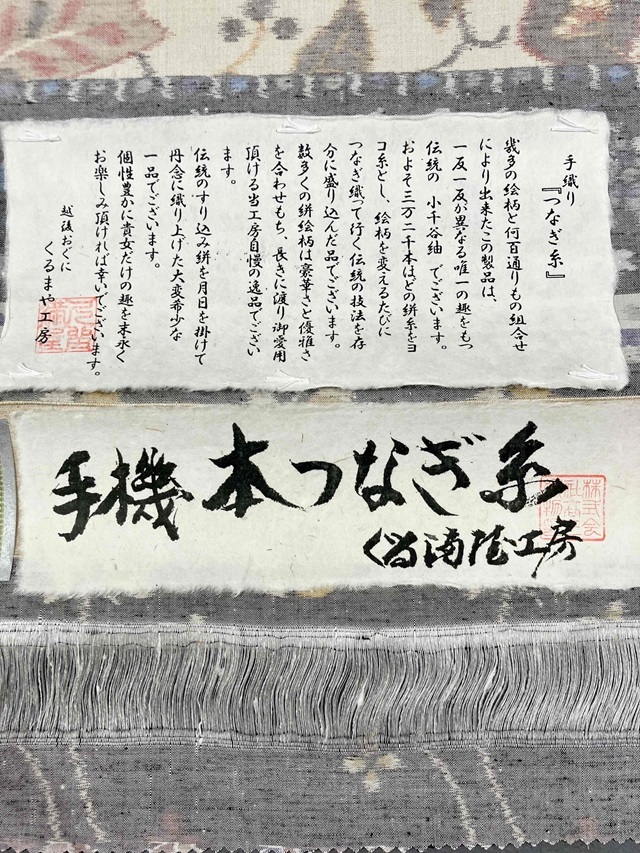 手織り
『つなぎ糸』
幾多の絵柄と何百通りもの組合せ
により出来たこの製品は、
一反一反が異なる唯一の趣をもつ
伝統の 小千谷紬 でございます。
およそ三万二千本ほどの絣糸をヨ
コ糸とし、絵柄を変えるたびに
つなぎ織って行く伝統の技法を存
分に盛り込んだ品でございます。
数多くの絣絵柄は豪華さと優雅さ
を合わせもち、長きに渡り御愛用
頂ける当工房自慢の逸品でござい
ます。
伝統のすり込み絣を月日を掛けて
丹念に織り上げた大変希少な
一品でございます。
個性豊かに貴女だけの趣を末永く
お楽しみ頂ければ幸いでございます。
越後おぐに
くるまや工房
手機 本つなぎ糸
工房
株式会